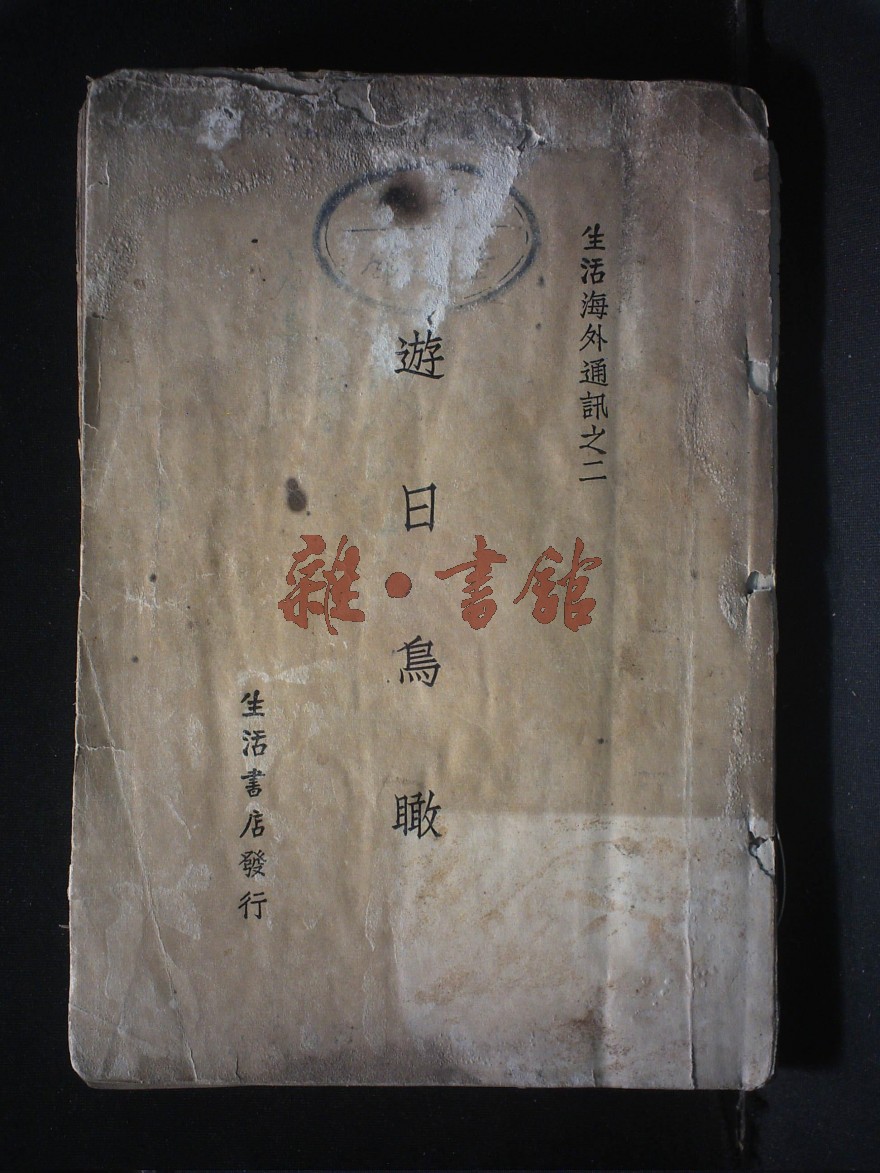 生活海外通訊之二
遊日鳥瞰
生活書店發行
雜·書館